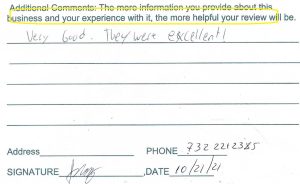 Additional Comments: The more information you provide about this
business and your experience with it, the more helpful your review will be.
Very Good. They were excellent!
Address PHONE 732 221 2385
SIGNATURE ,DATE 10/21/21